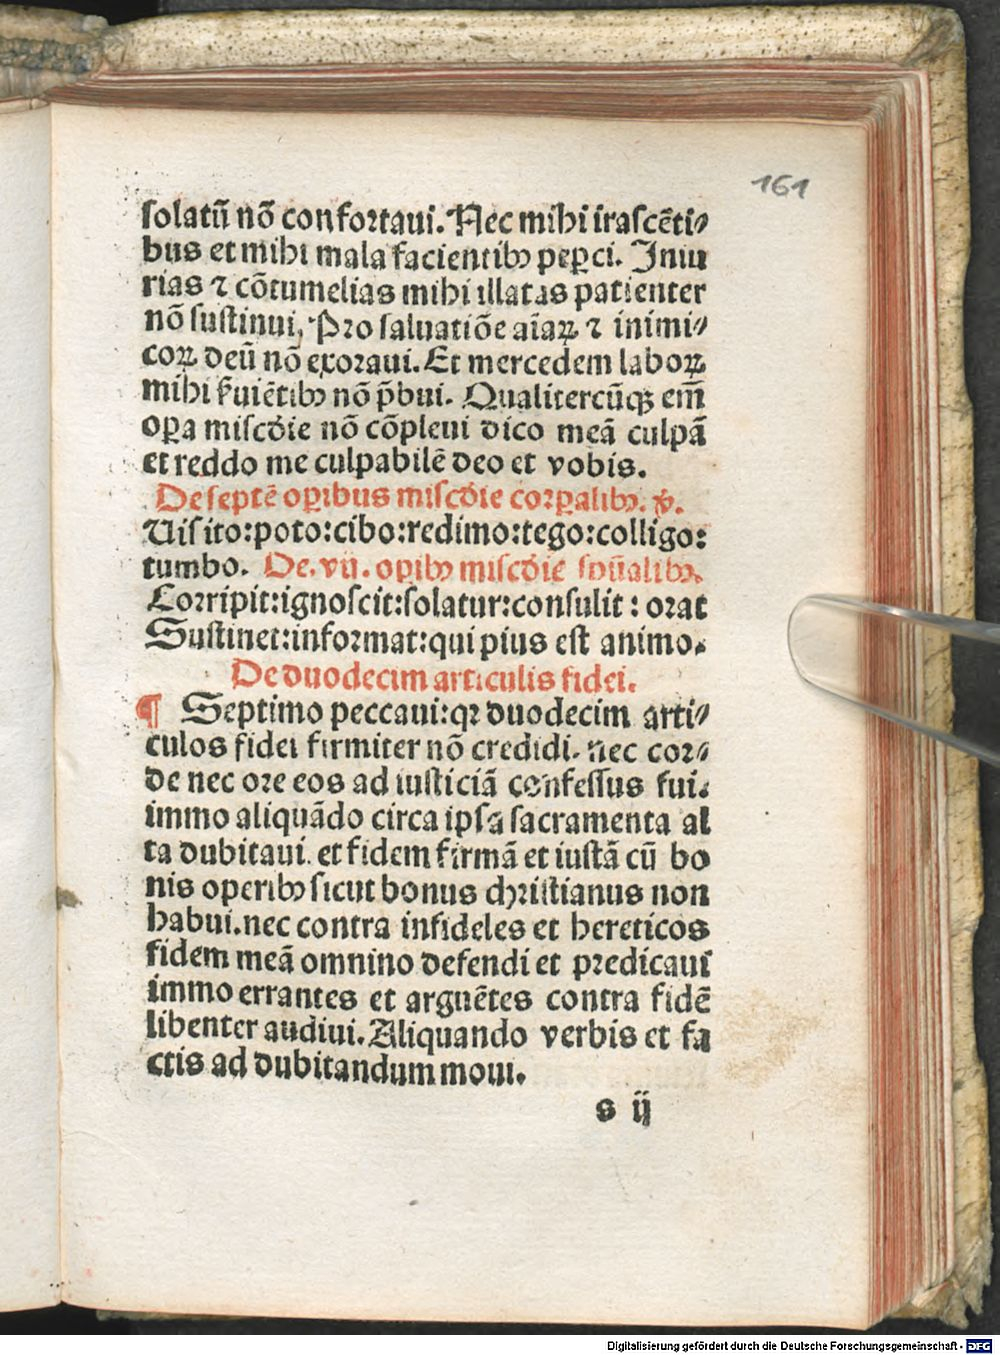 161
solatū nō confortaui. Nec mihi irascēti⸗
bus et mihi mala facientibꝰ peꝑci. Iniu
rias ⁊ cōtumelias mihi illatas patienter
nō sustinui. Pro saluatiōe aīaꝝ ⁊ inimi⸗
coꝝ deū nō exoraui. Et mercedem laboꝝ
mihi ẜuiētibꝰ nō p̄bui. Qualitercūqꝫ em̄
oꝑa miscdie nō cōpleui dico meā culpā
et reddo me culpabilē deo et vobis.
De septē oꝑibus miscdie corꝑalibꝰ. ꝟ.
Uisito:poto:cibo:redimo:tego:colligo:
tumbo. De. vii. oꝑibꝰ miscdie spūalibꝰ.
Corripit:ignoscit:solatur:consulit: orat
Sustinet:informat:qui pius est animo.
De duodecim articulis fidei.
¶ Septimo peccaui:qꝛ duodecim arti⸗
culos fidei firmiter nō credidi. nec cor⸗
de nec ore eos ad iusticiā confessus fui.
immo aliquādo circa ipsa sacramenta al
ta dubitaui. et fidem firmā et iustā cū bo
nis operibꝰ sicut bonus christianus non
habui. nec contra infideles et hereticos
fidem meā omnino defendi et predicaui
immo errantes et arguētes contra fidē
libenter audiui. Aliquando verbis et fa
ctis ad dubitandum moui.
s ij
Digitalisierung gefördert durch die Deutsche Forschungsgemeinschaft - DFG